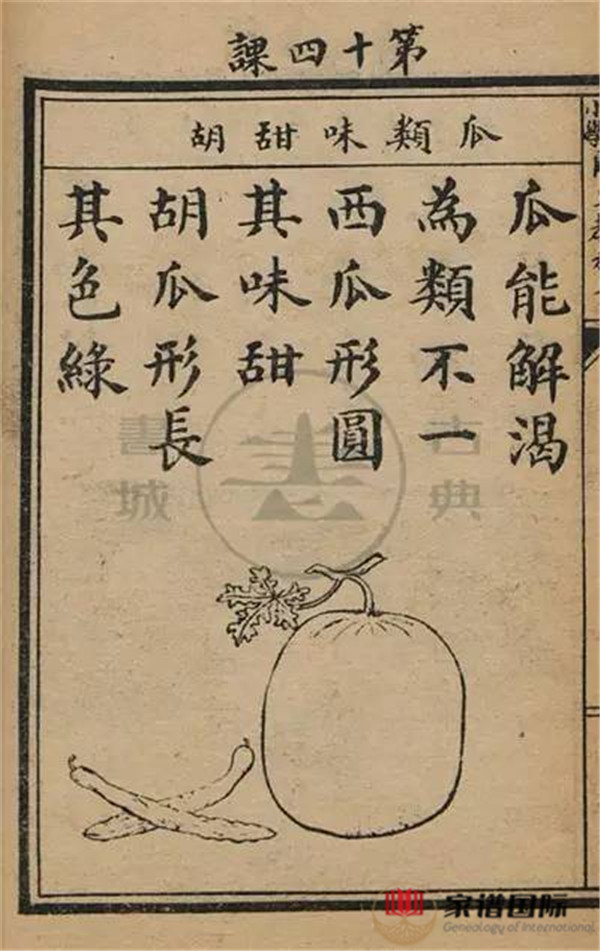 第十四課
瓜類味甜胡
瓜能解渴
為類不一
西瓜形圓
其味甜
胡瓜形長
其色綠
古典書城
家谱国际
Genealogy of International